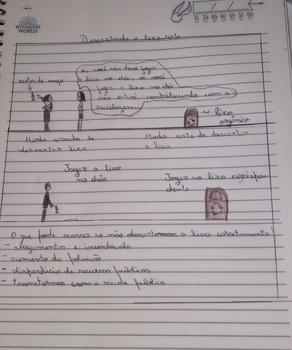 WORLD
Descartando o lixo certo
resto de maçã
ei, você não deve jogar
o lixo no chão, se você
jogar o lixo no chão
não estará contribuindo com a
reciclagem
lixo
orgânico
Modo errado de
descartar lixo
Modo certo de descartar
o lixo
Jogar o lixo
no chão
Jogar no lixo
O que pode ocorrer se não descartarmos o lixo corretamente?
- alagamentos e inundação
- aumento da poluição
- dispêndio de recursos públicos
- transtornos com a saúde pública